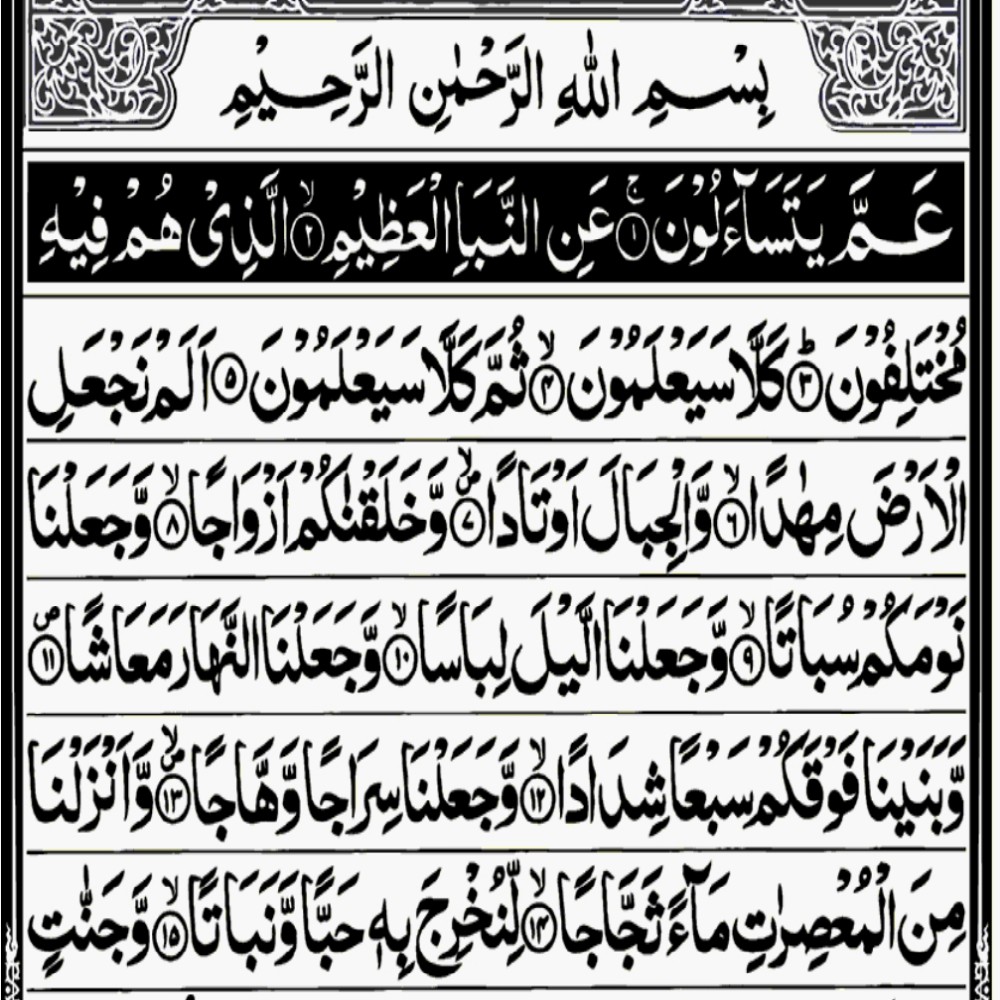 بِسْمِ اللهِ الرَّحْمٰنِ الرَّحِيْمِ
عَمَّ يَتَسَآءَلُوْنَ ۚ﴿۱﴾ عَنِ النَّبَاِ الْعَظِيْمِ ۙ﴿۲﴾ الَّذِىْ هُمْ فِيْهِ
مُخْتَلِفُوْنَ ؕ﴿۳﴾ كَلَّا سَيَعْلَمُوْنَ ۙ﴿۴﴾ ثُمَّ كَلَّا سَيَعْلَمُوْنَ ﴿۵﴾ اَلَمْ نَجْعَلِ
الْاَرْضَ مِهٰدًا ۙ﴿۶﴾ وَّالْجِبَالَ اَوْتَادًا ۪ۙ﴿۷﴾ وَّخَلَقْنٰكُمْ اَزْوَاجًا ۙ﴿۸﴾ وَّجَعَلْنَا
نَوْمَكُمْ سُبَاتًا ۙ﴿۹﴾ وَّجَعَلْنَا الَّيْلَ لِبَاسًا ۙ﴿۱۰﴾ وَّجَعَلْنَا النَّهَارَ مَعَاشًا ۪﴿۱۱﴾
وَّبَنَيْنَا فَوْقَكُمْ سَبْعًا شِدَادًا ۙ﴿۱۲﴾ وَّجَعَلْنَا سِرَاجًا وَّهَّاجًا ۪ۙ﴿۱۳﴾ وَّاَنْزَلْنَا
مِنَ الْمُعْصِرٰتِ مَآءً ثَجَّاجًا ۙ﴿۱۴﴾ لِّنُخْرِجَ بِهٖ حَبًّا وَّنَبَاتًا ۙ﴿۱۵﴾ وَّجَنّٰتٍ